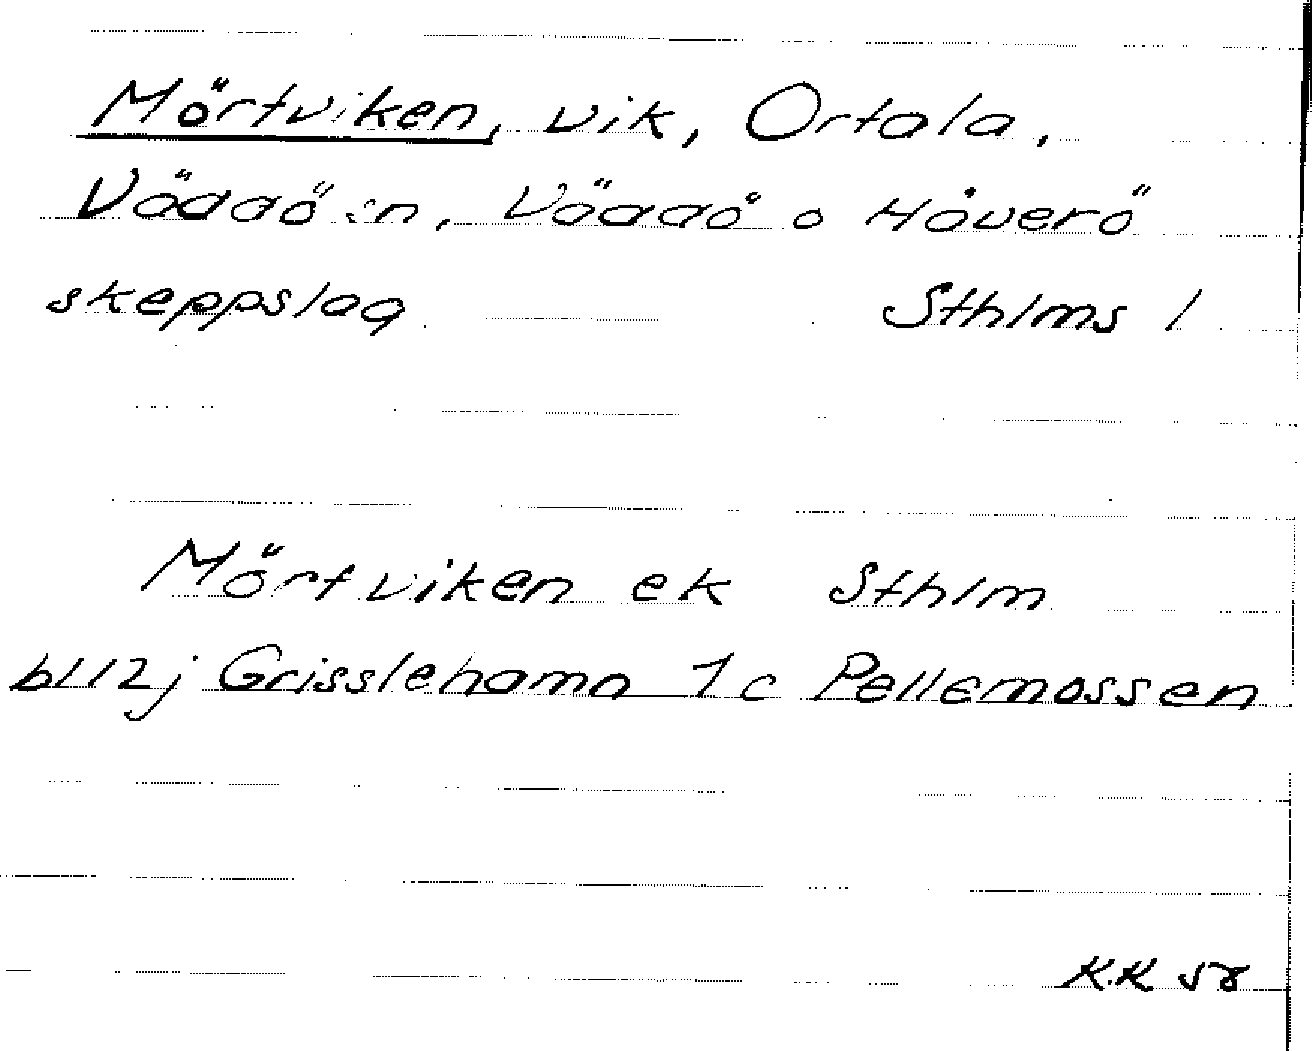 Mörtviken, vik, Ortala,
Väddö sn, Väddö o Häverö
skeppslag Sthlms l
Mörtviken ek Sthlm
bl 12j Grisslehamn 1c Pellemossen
K.K 58